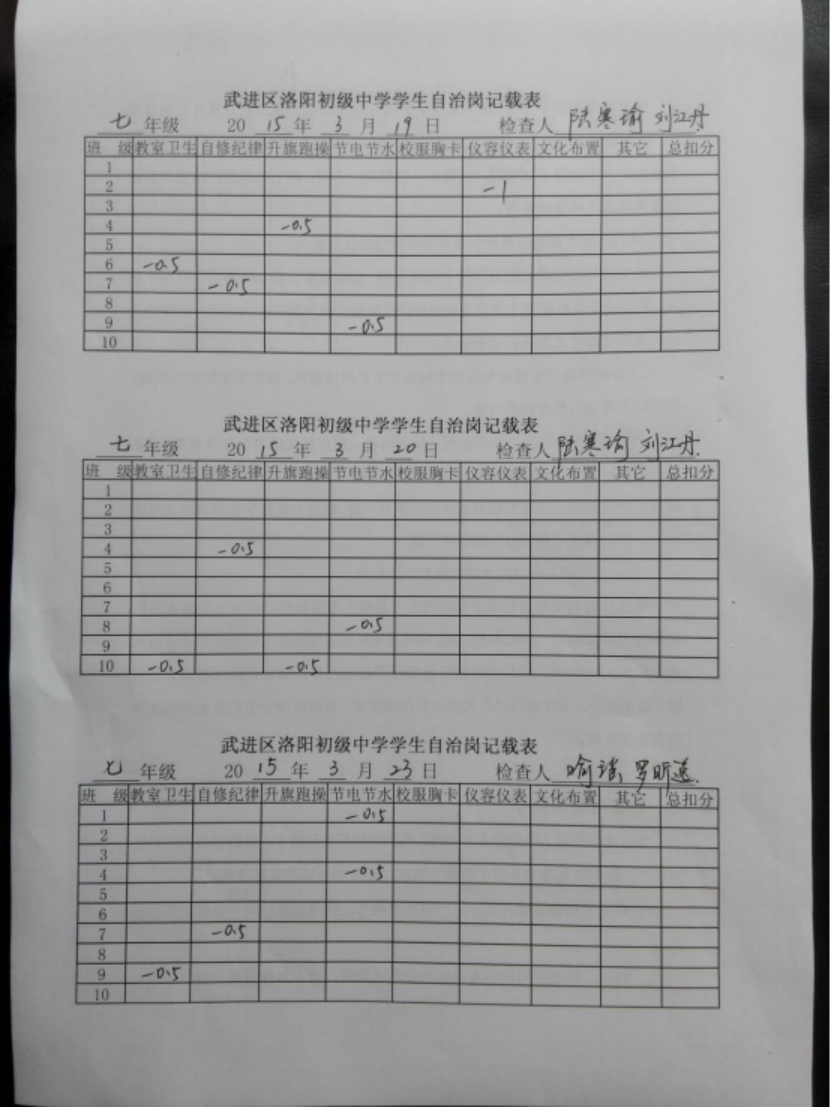 武进区洛阳初级中学学生自治岗记载表
七 年级 20 15 年 3 月 19 日 检查人 陆寒瑜 刘江丹
班 级 教室卫生 自修纪律 升旗跑操 节电节水 校服胸卡 仪容仪表 文化布置 其它 总扣分
1
2 -1
3
4 -0.5
5
6 -0.5
7 -0.5
8
9 -0.5
10
武进区洛阳初级中学学生自治岗记载表
七 年级 20 15 年 3 月 20 日 检查人 陆寒瑜 刘江丹
班 级 教室卫生 自修纪律 升旗跑操 节电节水 校服胸卡 仪容仪表 文化布置 其它 总扣分
1
2
3
4 -0.5
5
6
7
8 -0.5
9
10 -0.5 -0.5
武进区洛阳初级中学学生自治岗记载表
七 年级 20 15 年 3 月 23 日 检查人
班 级 教室卫生 自修纪律 升旗跑操 节电节水 校服胸卡 仪容仪表 文化布置 其它 总扣分
1 -0.5
2
3
4 -0.5
5
6
7 -0.5
8
9 -0.5
10